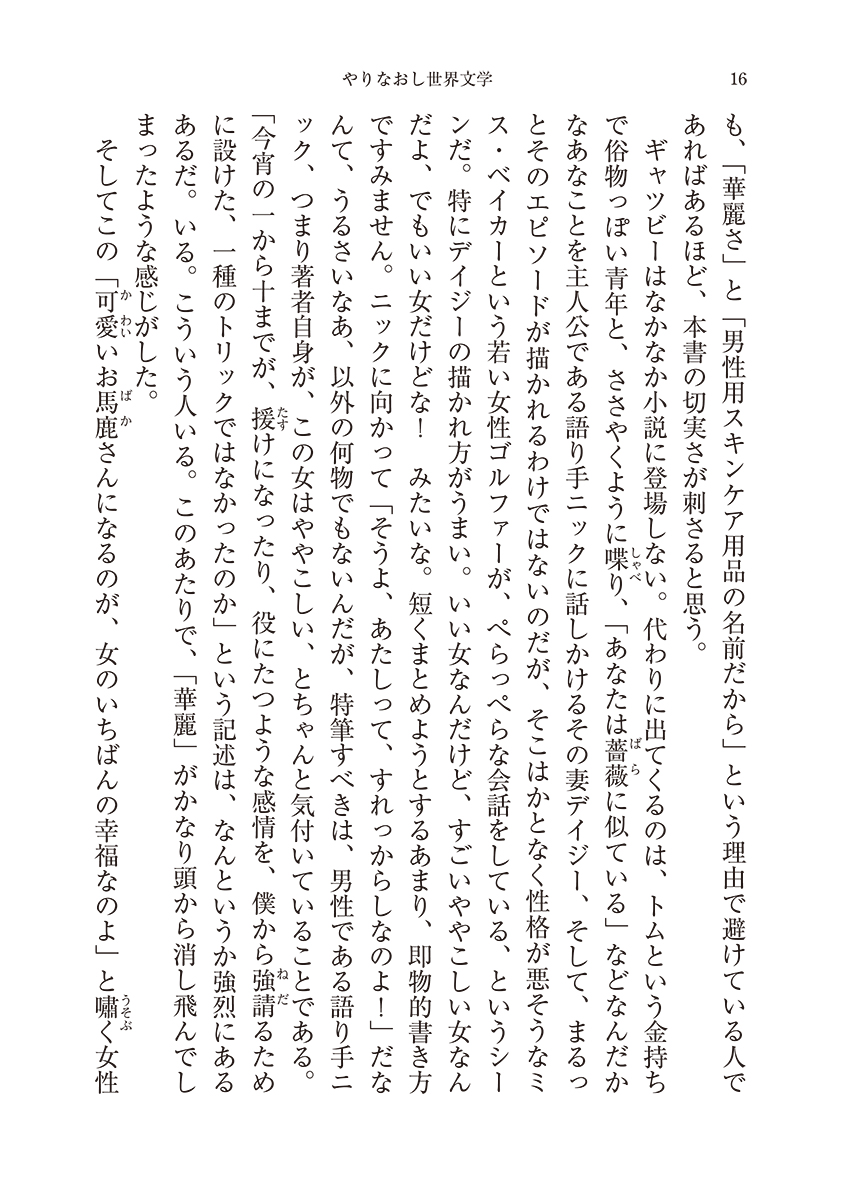 やりなおし世界文学
16
も、「華麗さ」と「男性用スキンケア用品の名前だから」という理由で避けている人で
あればあるほど、本書の切実さが刺さると思う。
ギャツビーはなかなか小説に登場しない。代わりに出てくるのは、トムという金持ち
で俗物っぽい青年と、ささやくように喋り、「あなたは薔薇に似ている」などなんだか
なあなことを主人公である語り手ニックに話しかけるその妻デイジー、そして、まるっ
とそのエピソードが描かれるわけではないのだが、そこはかとなく性格が悪そうなミ
ス・ベイカーという若い女性ゴルファーが、ぺらっぺらな会話をしている、というシー
ンだ。特にデイジーの描かれ方がうまい。いい女なんだけど、すごいややこしい女なん
だよ、でもいい女だけどな！　みたいな。短くまとめようとするあまり、即物的書き方
ですみません。ニックに向かって「そうよ、あたしって、すれっからしなのよ！」だな
んて、うるさいなあ、以外の何物でもないんだが、特筆すべきは、男性である語り手ニ
ック、つまり著者自身が、この女はややこしい、とちゃんと気付いていることである。
「今宵の一から十までが、援けになったり、役にたつような感情を、僕から強請るため
に設けた、一種のトリックではなかったのか」という記述は、なんというか強烈にある
あるだ。いる。こういう人いる。このあたりで、「華麗」がかなり頭から消し飛んでし
まったような感じがした。
そしてこの「可愛いお馬鹿さんになるのが、女のいちばんの幸福なのよ」と嘯く女性